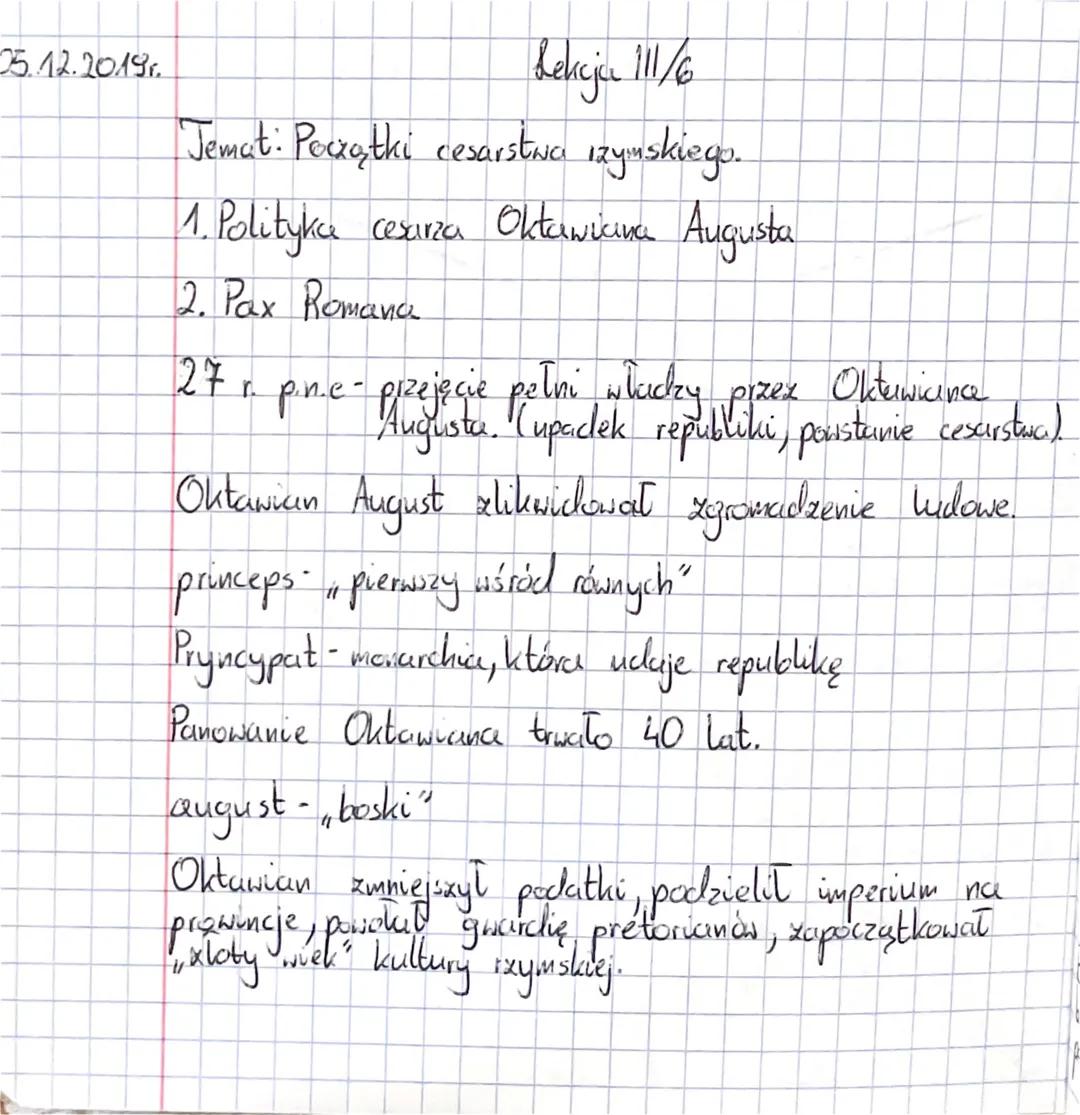 25.12.2019r.
Lekcja III/6
Temat: Początki cesarstwa rzymskiego.
1. Polityka cesarza Oktawiana Augusta
2. Pax Romana
27 r. p.n.e - przejęcie pełni władzy przez Oktawiana
Augusta. (upadek republiki, powstanie cesarstwa).
Oktawian August zlikwidował zgromadzenie ludowe.
princeps - „pierwszy wśród równych"
Pryncypat - monarchia, która udaje republikę
Panowanie Oktawiana trwało 40 lat.
august - „boski"
Oktawian zmniejszył podatki, podzielił imperium na
prowincje, powołał gwardię pretorianów, zapoczątkował
„złoty wiek" kultury rzymskiej.